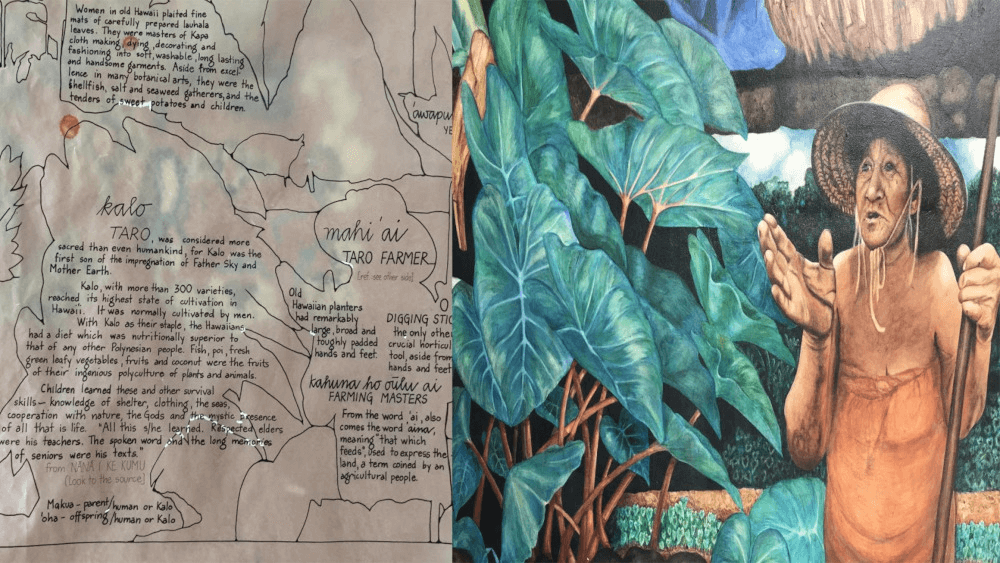 Women in old Hawaii plaited fine
mats of carefully prepared lauhala
leaves. They were masters of Kapa
cloth making, dying, decorating and
fashioning into soft, washable, long lasting
and handsome garments. Aside from excel
lence in many botanical arts, they were the
shellfish, salt and seaweed gatherers, and the
tenders of sweet potatoes and children.
'awapu
YE
kalo
TARO, was considered more
sacred than even humankind, for Kalo was the
first son of the impregnation of Father Sky and
Mother Earth.
Kalo, with more than 300 varieties,
reached its highest state of cultivation in
Hawaii. It was normally cultivated by men.
With Kalo as their staple, the Hawaiians
had a diet which was nutritionally superior to
that of any other Polynesian people. Fish, poi, fresh
green leafy vegetables, fruits and coconut were the fruits
of their ingenious polyculture of plants and animals.
Children learned these and other survival
skills - knowledge of shelter, clothing, the seas,
cooperation with nature, the Gods and the mystic presence
of all that is life. "All this s/he learned. Respected elders
were his teachers. The spoken word and the long memories
of seniors were his texts."
from NANA I KE KUMU
(Look to the source)
Makua - parent/human or Kalo
'oha - offspring/human or Kalo
mahi 'ai
TARO FARMER
(ref. see other side)
Old
Hawaiian planters
had remarkably
large, broad and
toughly padded
hands and feet.
O
DIGGING STIC
the only othe
crucial horticul
tool, aside from
hands and feet
kahuna ho oulu ai
FARMING MASTERS
From the word 'ai, also
comes the word aina,
meaning "that which
feeds", used to express the
land, a term coined by an
agricultural people.